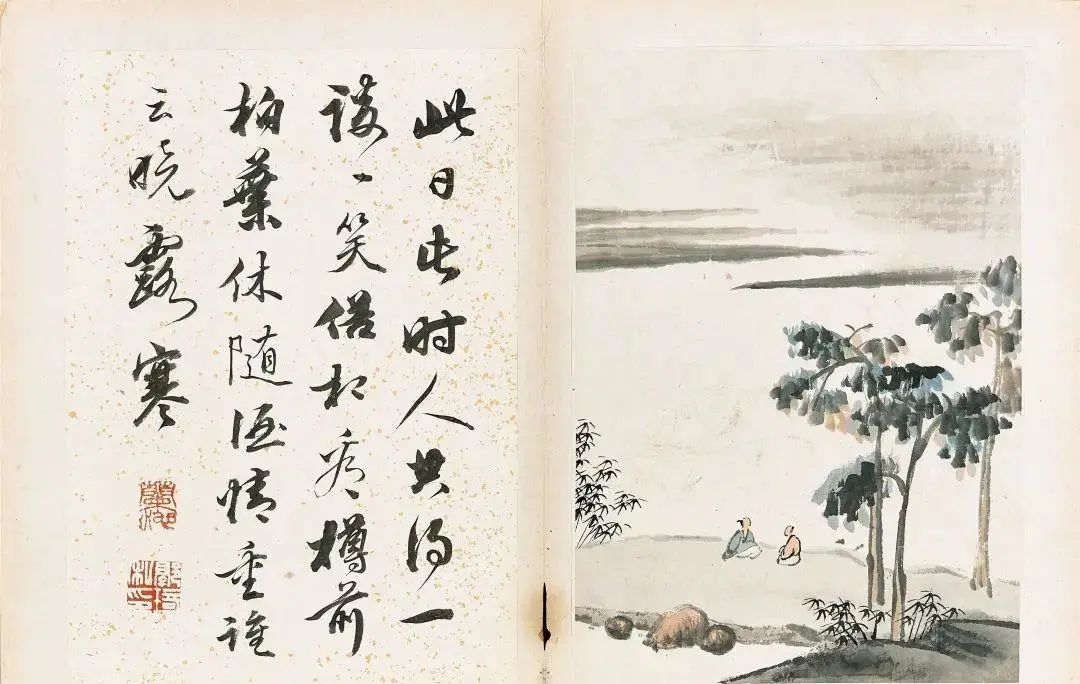 此日此时人共得一
谈一笑俗相看樽前
柏葉休随酒情重谁
云晓露寒